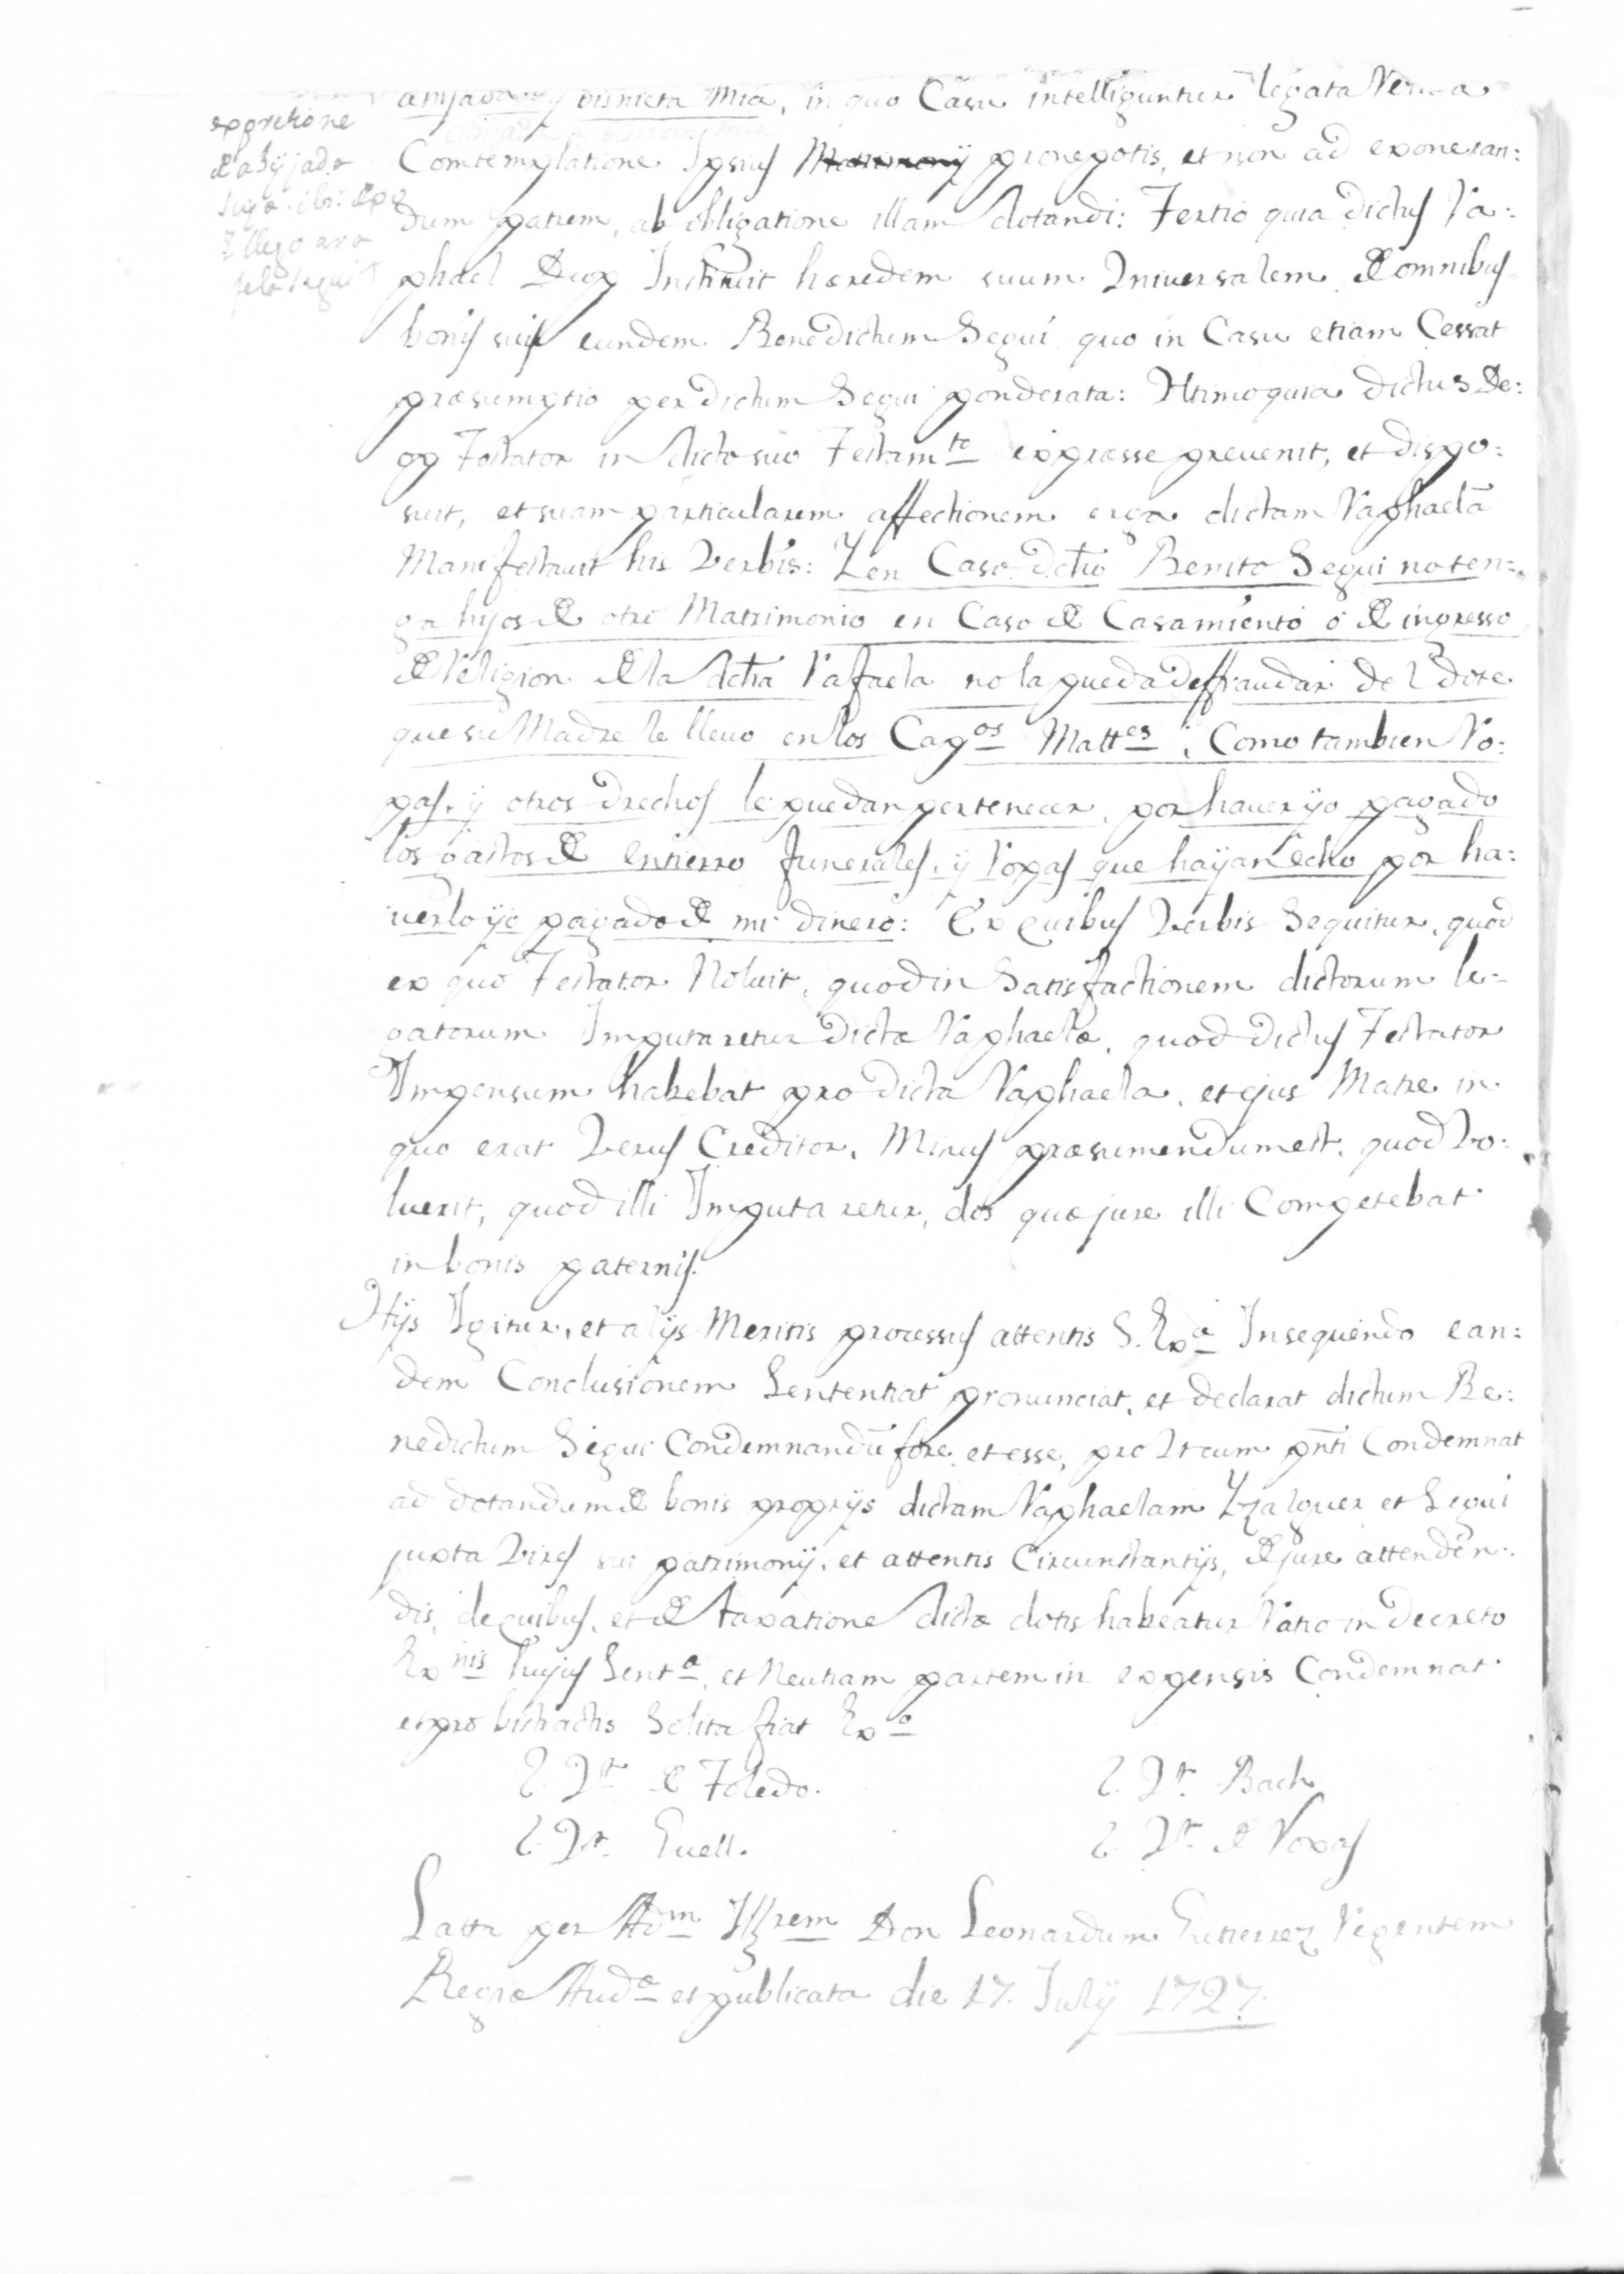 ahijada y bisnieta mia, in quo Casu intelliguntur legata
Comtemplatione Ipsius Matrimonij pronepotis, et non ad exoneran:
dum patrem, ab obligatione illam dotandi: Tertio quia dictus Ra:
phael Deop Instituit hæredem suum Vniversalem de omnibus
bonis suis eundem Benedictum Segui quo in Casu etiam Cessat
præsumptio per dictum Segui ponderata: Vltimo quia dictus De:
op Testator in dicto suo Testamto expresse prevenit, et dispo:
suit, et suam particularem affectionem erga dictam Raphaelã
Manifestavit his verbis: Y en Caso dcho Benito Segui no ten=
ga hijos de otro Matrimonio en Caso de Casamiento o de ingresso
de Religion de la dcha Rafaela no la pueda deffraudar del dote
que su Madre le lleuo en los Capos Mattes, Como tambien Ro:
pas, y otros drechos le puedan pertenecer, por hauer yo pagado
los gastos de entierro funerales, y ropas que hayan echo por ha:
uerlo yo pagado de mi dinero: Ex quibus verbis sequitur, quod
ex quo Testator Noluit, quod in Satisfactionem dictorum le=
gatorum Imputaretur dictæ Raphaelæ, quod dictus Testator
Impensum habebat pro dicta Raphaela, et ejus Matre in
quo erat verus Creditor, Minus præsumendum est, quod vo:
luerit, quod illi Imputaretur, dos quæ jure illi Competebat
in bonis paternis.
Hijs Igitur, et alijs Meritis processus attentis S. Exa Insequendo ean:
dem Conclusionem Sententiat pronunciat, et declarat dictum Be:
nedictum Segui Condemnandũ fore et esse, pro vt cum pñti Condemnat
ad dotandum de bonis proprijs dictam Raphaelam Yzalguer et Segui
juxta vires sui patrimonij, et attentis Circunstantijs, de jure attenden:
dis, de quibus, et de taxatione dictæ dotis habeatur ratio in decreto
Exnis hujus Senta, et Neutram partem in expensis Condemnat
et pro bistractis Solita fiat Exo
Vt de Toledo.
Vt Bach
Vt Guell.
Vt de Roxas
Latta per Adm Illrem Don Leonardum Gutierrez Regentem
Regiæ Auda et publicata die 17. Julij 1727.